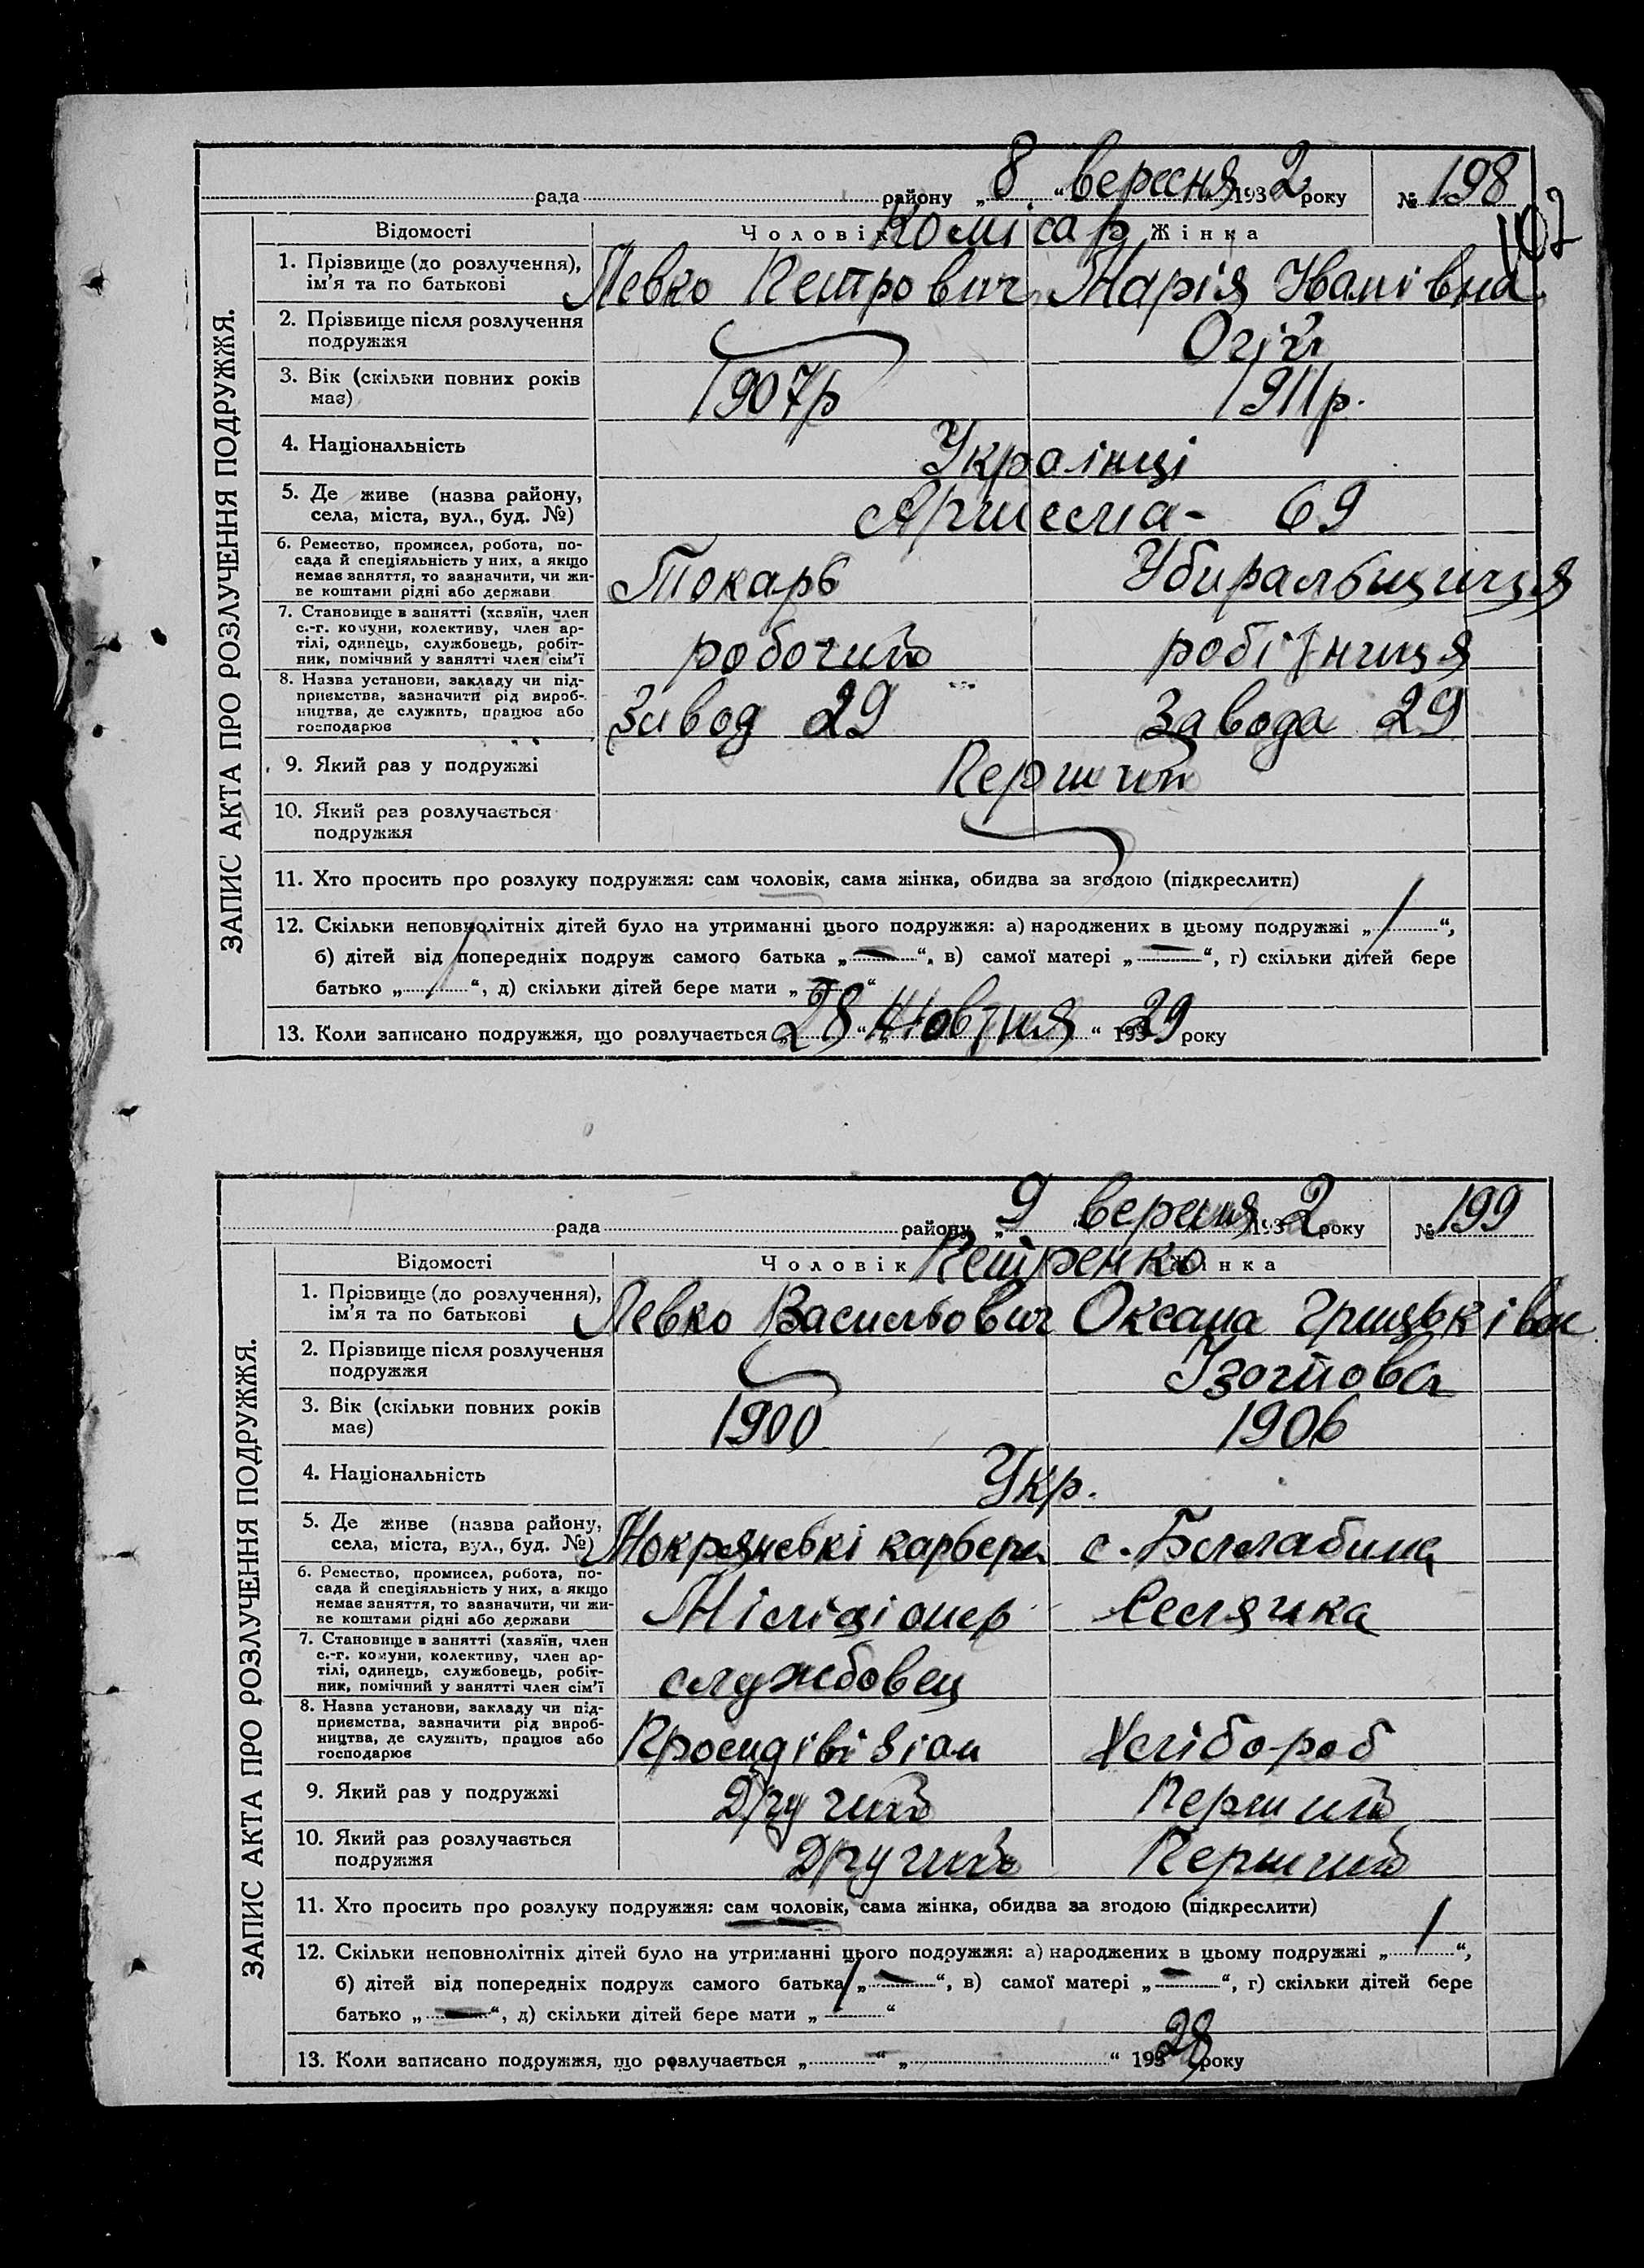 рада района „ 8 “ вересня 1932 року № 198
102
Відомості Чоловік Жінка
Комісар
1. Прізвище (до розлучення), ім'я та по батькові Левко Петрович Марія Іванівна
2. Прізвище після розлучення подружжя Огій
3. Вік (скільки повних років має) 1907р 1911р.
4. Національність Українці
5. Де живе (назва району, села, міста, вул., буд. №) Артема - 69
6. Ремество, промисел, робота, по-
сада й спеціяльність у них, а якщо
немає заняття, то зазначити, чи жи-
ве коштами рідні або держави Токарь Убиральщиця
7. Становище в занятті (хазяїн, член
с.-г. комуни, колективу, член ар-
тілі, одинець, службовець, робіт-
ник, помічний у занятті член сім'ї робочий робітниця
8. Назва установи, закладу чи під-
приємства, зазначити рід вироб-
ництва, де служить, працює або
господарює Завод 29 Завода 29
9. Який раз у подружжі Перший
10. Який раз розлучається подружжя
11. Хто просить про розлуку подружжя: сам чоловік, сама жінка, обидва за згодою (підкреслити)
12. Скільки неповнолітніх дітей було на утриманні цього подружжя: а) народжених в цьому подружжі „ 1 “,
б) дітей від попередніх подруж самого батька „ — “, в) самої матері „ — “, г) скільки дітей бере
батько „ “, д) скільки дітей бере мати „ “
13. Коли записано подружжя, що розлучається „ 28 “ „ Жовтня “ 1929 року
ЗАПИС АКТА ПРО РОЗЛУЧЕННЯ ПОДРУЖЖЯ.
рада району „ 9 вересня 1932 року № 199
Відомості Чоловік Жінка
Петренко
1. Прізвище (до розлучення), ім'я та по батькові Левко Васильович Оксана Грицьківн
2. Прізвище після розлучення подружжя Ізотова
3. Вік (скільки повних років має) 1900 1906
4. Національність Укр.
5. Де живе (назва району, села, міста, вул., буд. №) Мокрянські карьери с. Балабина
6. Ремество, промисел, робота, по-
сада й спеціяльність у них, а якщо
немає заняття, то зазначити, чи жи-
ве коштами рідні або держави Міліціонер Селянка
7. Становище в занятті (хазяїн, член
с.-г. комуни, колективу, член ар-
тілі, одинець, службовець, робіт-
ник, помічний у занятті член сім'ї службовец
8. Назва установи, закладу чи під-
приємства, зазначити рід вироб-
ництва, де служить, працює або
господарює Хлібороб
9. Який раз у подружжі Другий Перший
10. Який раз розлучається подружжя Другий Перший
11. Хто просить про розлуку подружжя: сам чоловік, сама жінка, обидва за згодою (підкреслити)
12. Скільки неповнолітніх дітей було на утриманні цього подружжя: а) народжених в цьому подружжі „ 1 “,
б) дітей від попередніх подруж самого батька „ — “, в) самої матері „ — “, г) скільки дітей бере
батько „ — “, д) скільки дітей бере мати „ “
13. Коли записано подружжя, що розлучається „ “ „ “ 1928 року
ЗАПИС АКТА ПРО РОЗЛУЧЕННЯ ПОДРУЖЖЯ.